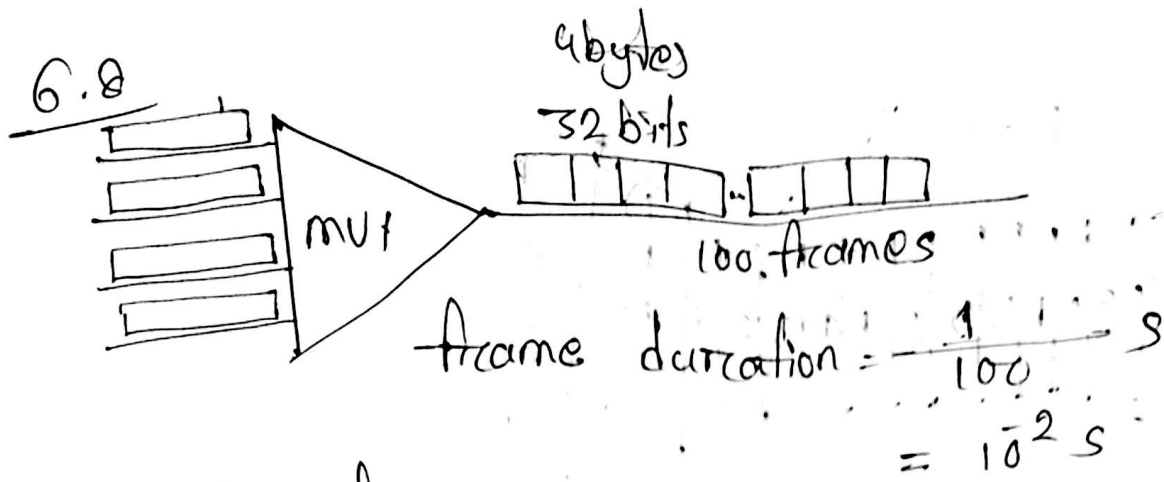 6.8
4bytes
32 bits
MUX
100 frames
frame duration = 1/100 s
= 10^-2 s